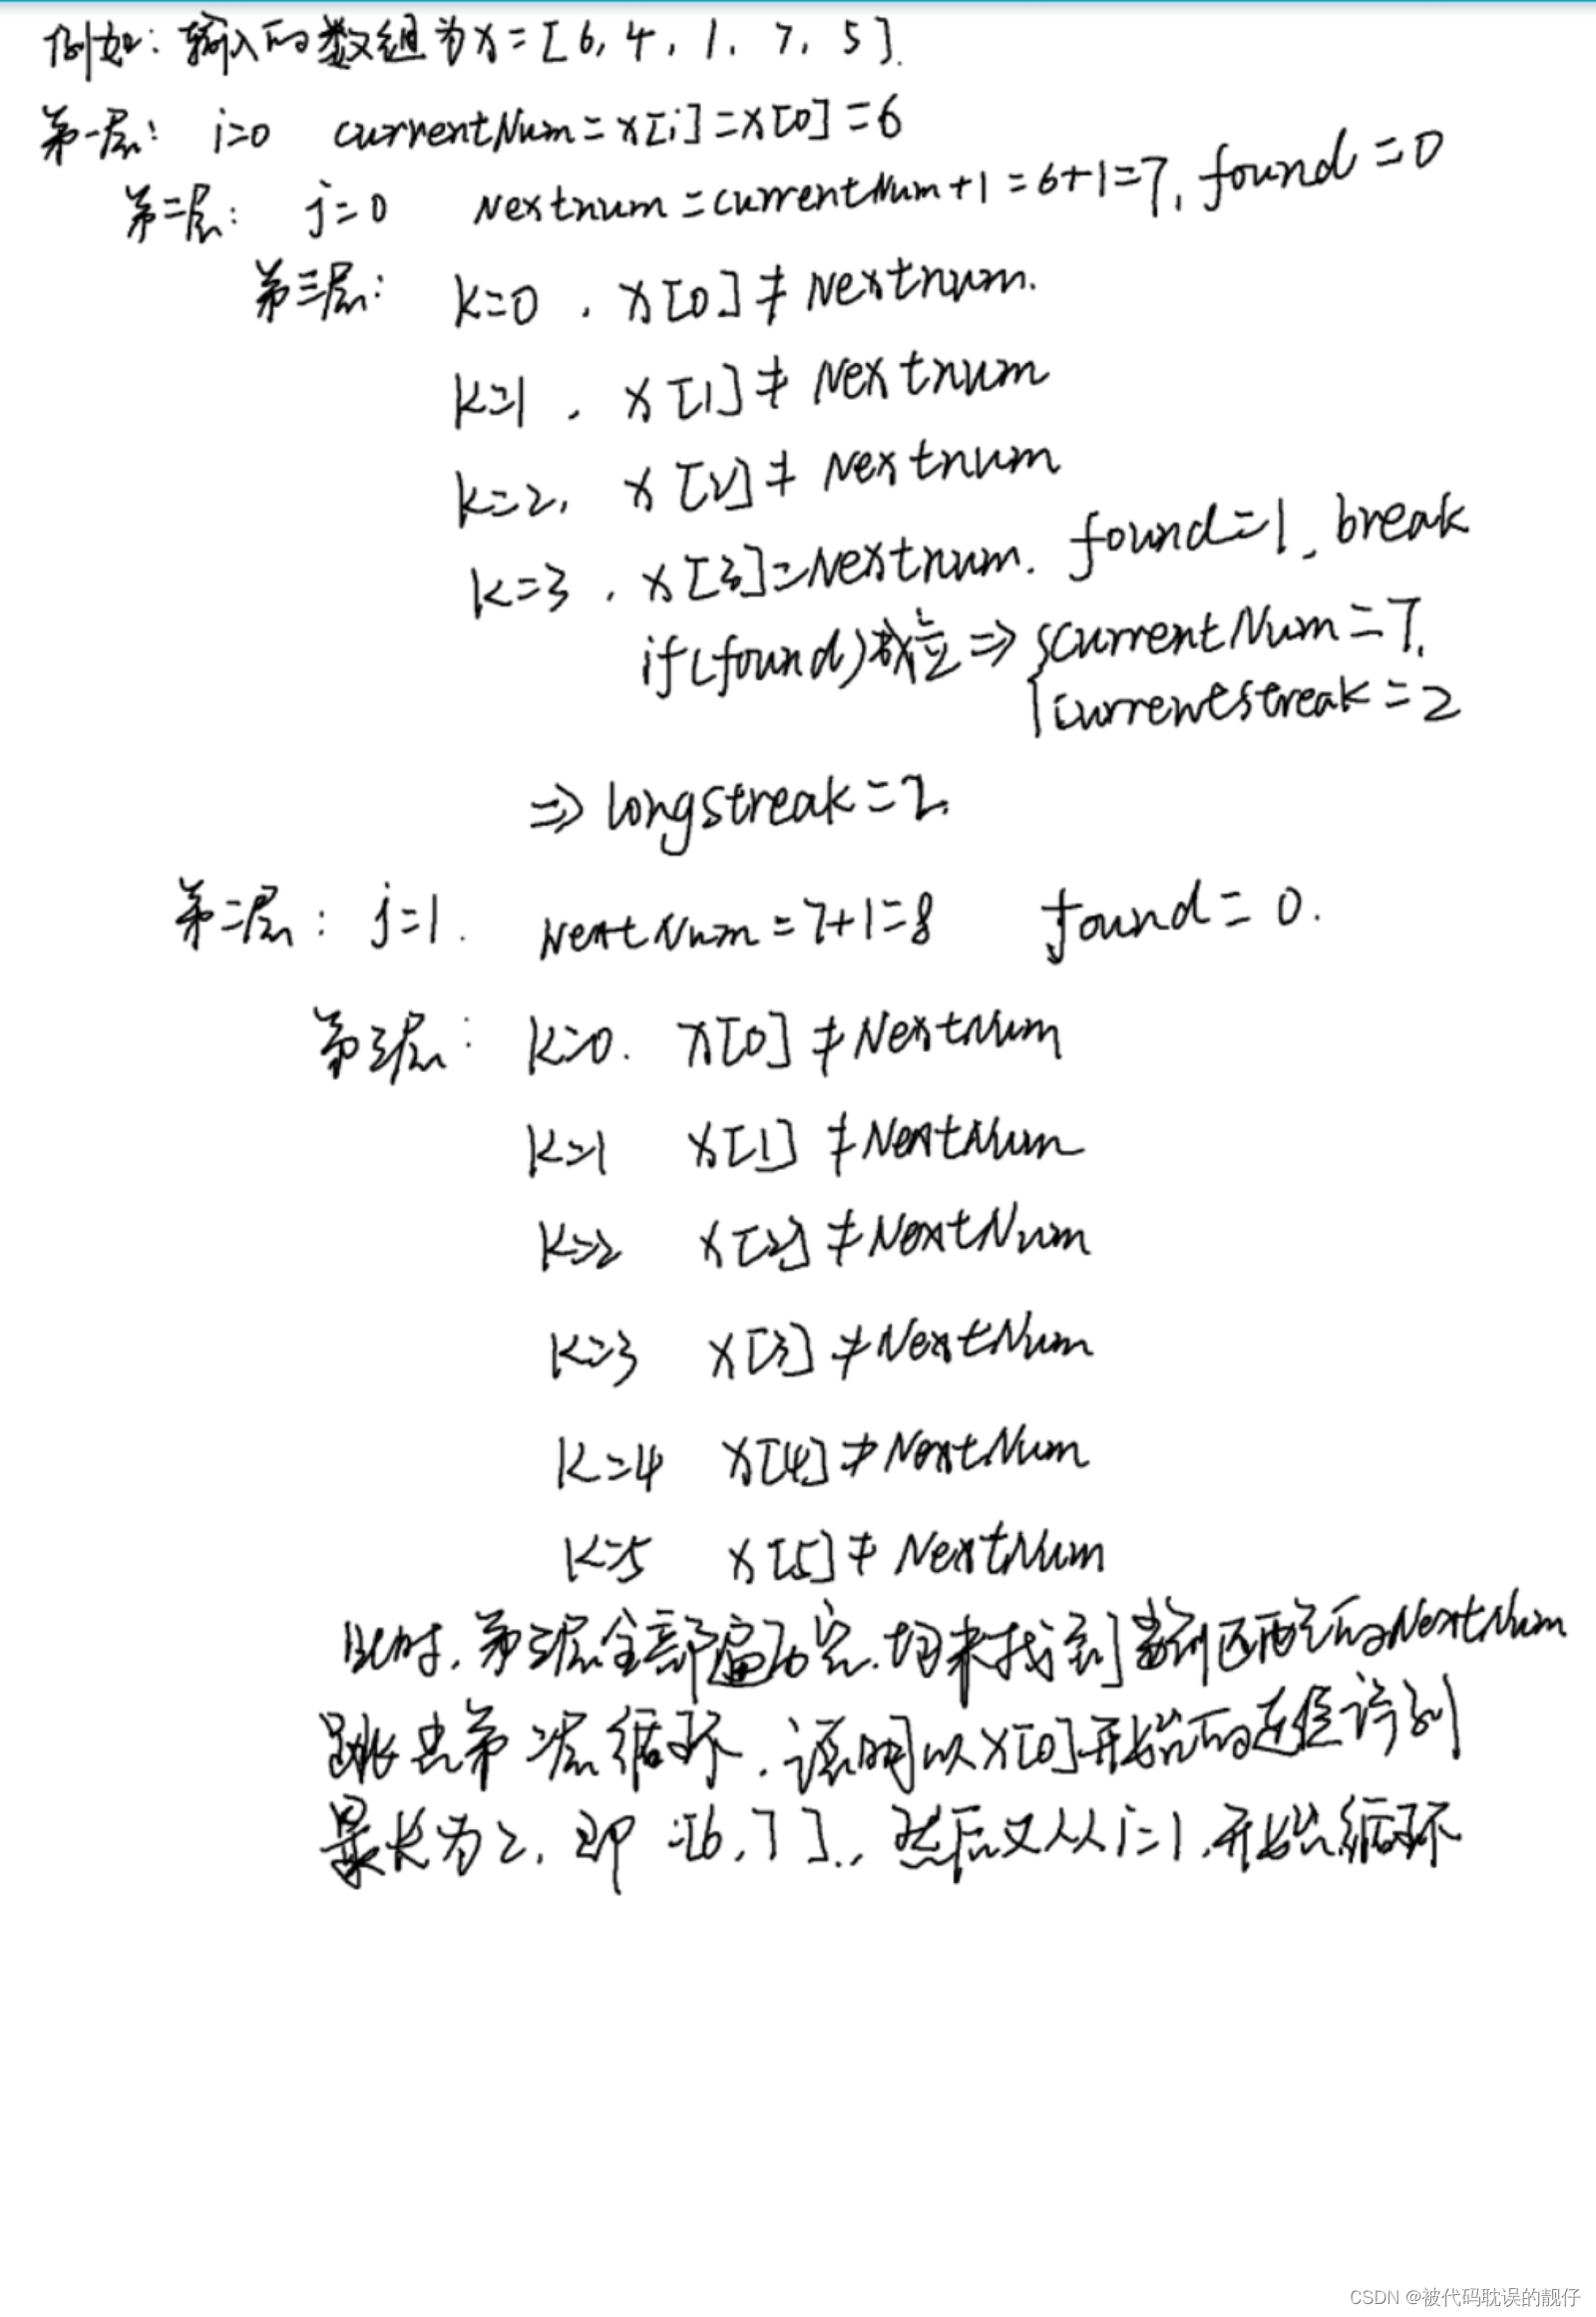 例如：输入的数组为x=[6,4,1,7,5].
第一层： i=0 currentNum=x[i]=x[0]=6
第二层： j=0 Nextnum=currentNum+1=6+1=7, found=0
第三层： k=0, x[0]≠Nextnum.
k=1, x[1]≠Nextnum
k=2, x[2]≠Nextnum
k=3, x[3]=Nextnum. found=1, break
if(found)成立⇒{currentNum=7,
currentstreak=2
⇒longstreak=2.
第二层： j=1. NextNum=7+1=8 found=0.
第三层： k=0. x[0]≠NextNum
k=1 x[1]≠NextNum
k=2 x[2]≠NextNum
k=3 x[3]≠NextNum
k=4 x[4]≠NextNum
k=5 x[5]≠NextNum
此时,第三层全部遍历完,均未找到匹配的NextNum
跳出第二层循环,说明以x[0]开始的连续序列
最长为2,即:[6,7],然后又从i=1,开始循环
CSDN @被代码耽误的靓仔